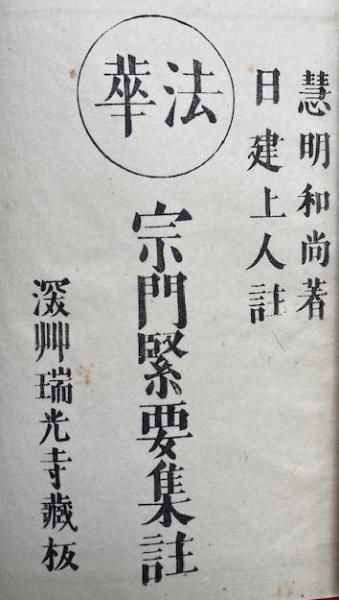 慧明和尚著
日建上人註
法華
宗門緊要集註
深艸瑞光寺藏板